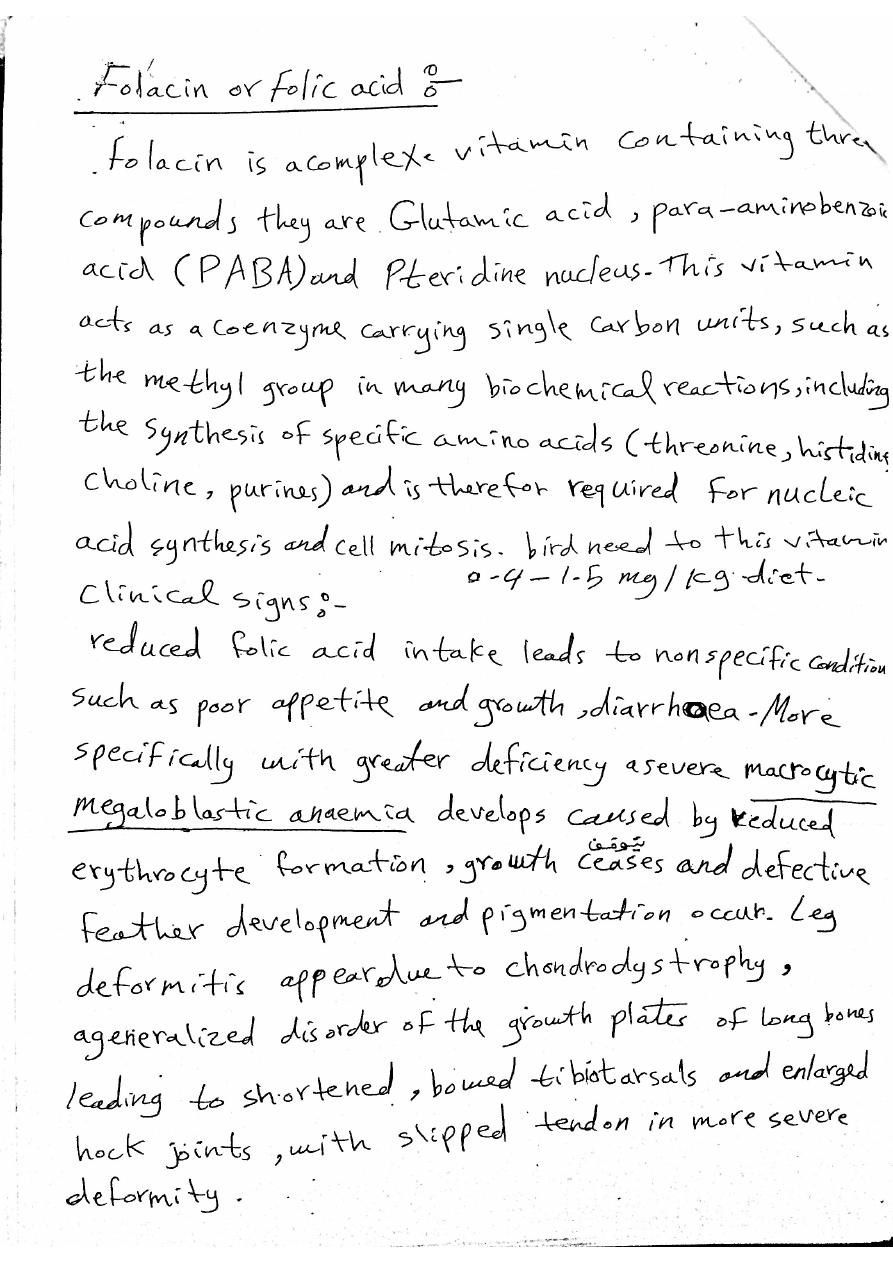 Folacin or folic acid :-
folacin is acomplexe vitamin containing three
compounds they are Glutamic acid, para-aminobenzoic
acid (PABA) and Pteridine nucleus. This vitamin
acts as a coenzyme carrying single carbon units, such as
the methyl group in many biochemical reactions, including
the synthesis of specific amino acids (threonine, histidine
choline, purines) and is therefor required for nucleic
acid synthesis and cell mitosis. bird need to this vitamin
0.4-1.5 mg/kg.diet.
Clinical signs:-
reduced folic acid intake leads to nonspecific condition
such as poor appetite and growth, diarrhoaea. More
specifically with greater deficiency asevere macrocytic
megaloblastic anaemia develops caused by reduced
يتوقف
erythrocyte formation, growth ceases and defective
feather development and pigmentation occur. Leg
deformitis appear due to chondrodystrophy,
ageneralized disorder of the growth plates of long bones
leading to shortened, bowed tibiotarsals and enlarged
hock joints, with slipped tendon in more severe
deformity.